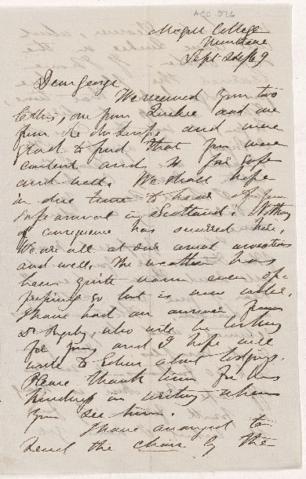 ACC 926
McGill College
Montreal
Sept 24/69
Dear George
We received your two
letters, one from Quebec and one
from the Str. and were
glad to find that you were
content and so far safe
and well. We shall hope
in due time to hear of your
safe arrival in Scotland. Nothing
of consequence has occurred here.
We are all at our usual avocations
and well. The weather has
been quite warm even
so but is now cooler.
I have had an answer from
Dr. who will be looking
for you and I hope will
write to Edinr about lodgings.
Please thank him for his
kindness in writing when
you see him.
I have arranged to
send the chain by the